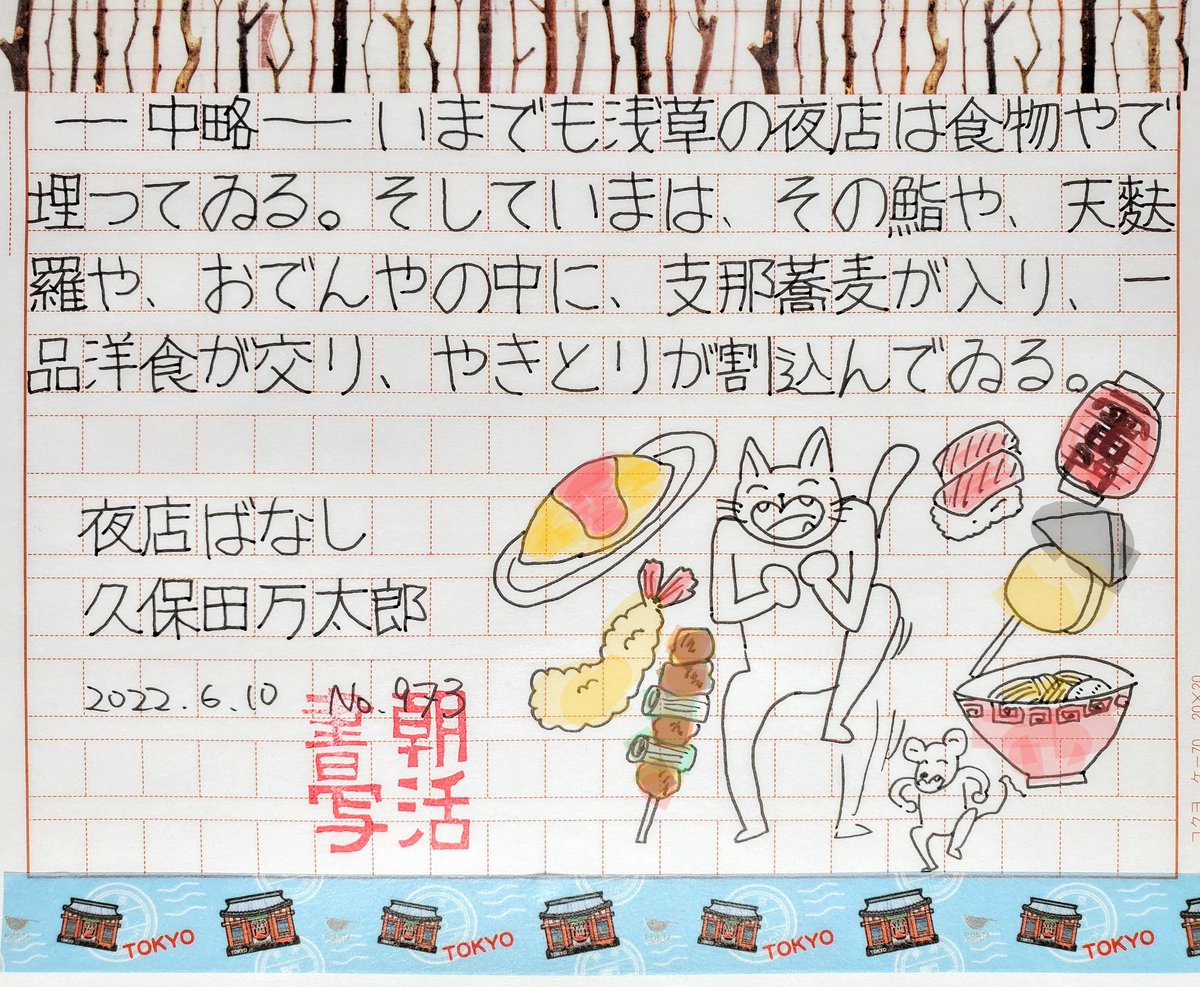 ― 中略 ― いまでも浅草の夜店は食物やで
埋ってゐる。そしていまは、その鮨や、天麩
羅や、おでんやの中に、支那蕎麦が入り、一
品洋食が交り、やきとりが割込んでゐる。
一番
夜店ばなし
久保田万太郎
2022.6.10 No.973
朝活
書写
TOKYO TOKYO TOKYO TOKYO
コクヨ ケー70 20×20